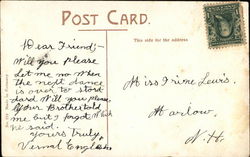 POST CARD.
This side for the address
Dear Friend;-
Will you please
Let me no when
the next dance
is over to stod
dard Will you please.
your Brother told
me but I forgot which
he said.
yours truly,
Vernal English
Miss Irine Lewis.
Marlow,
N.H.